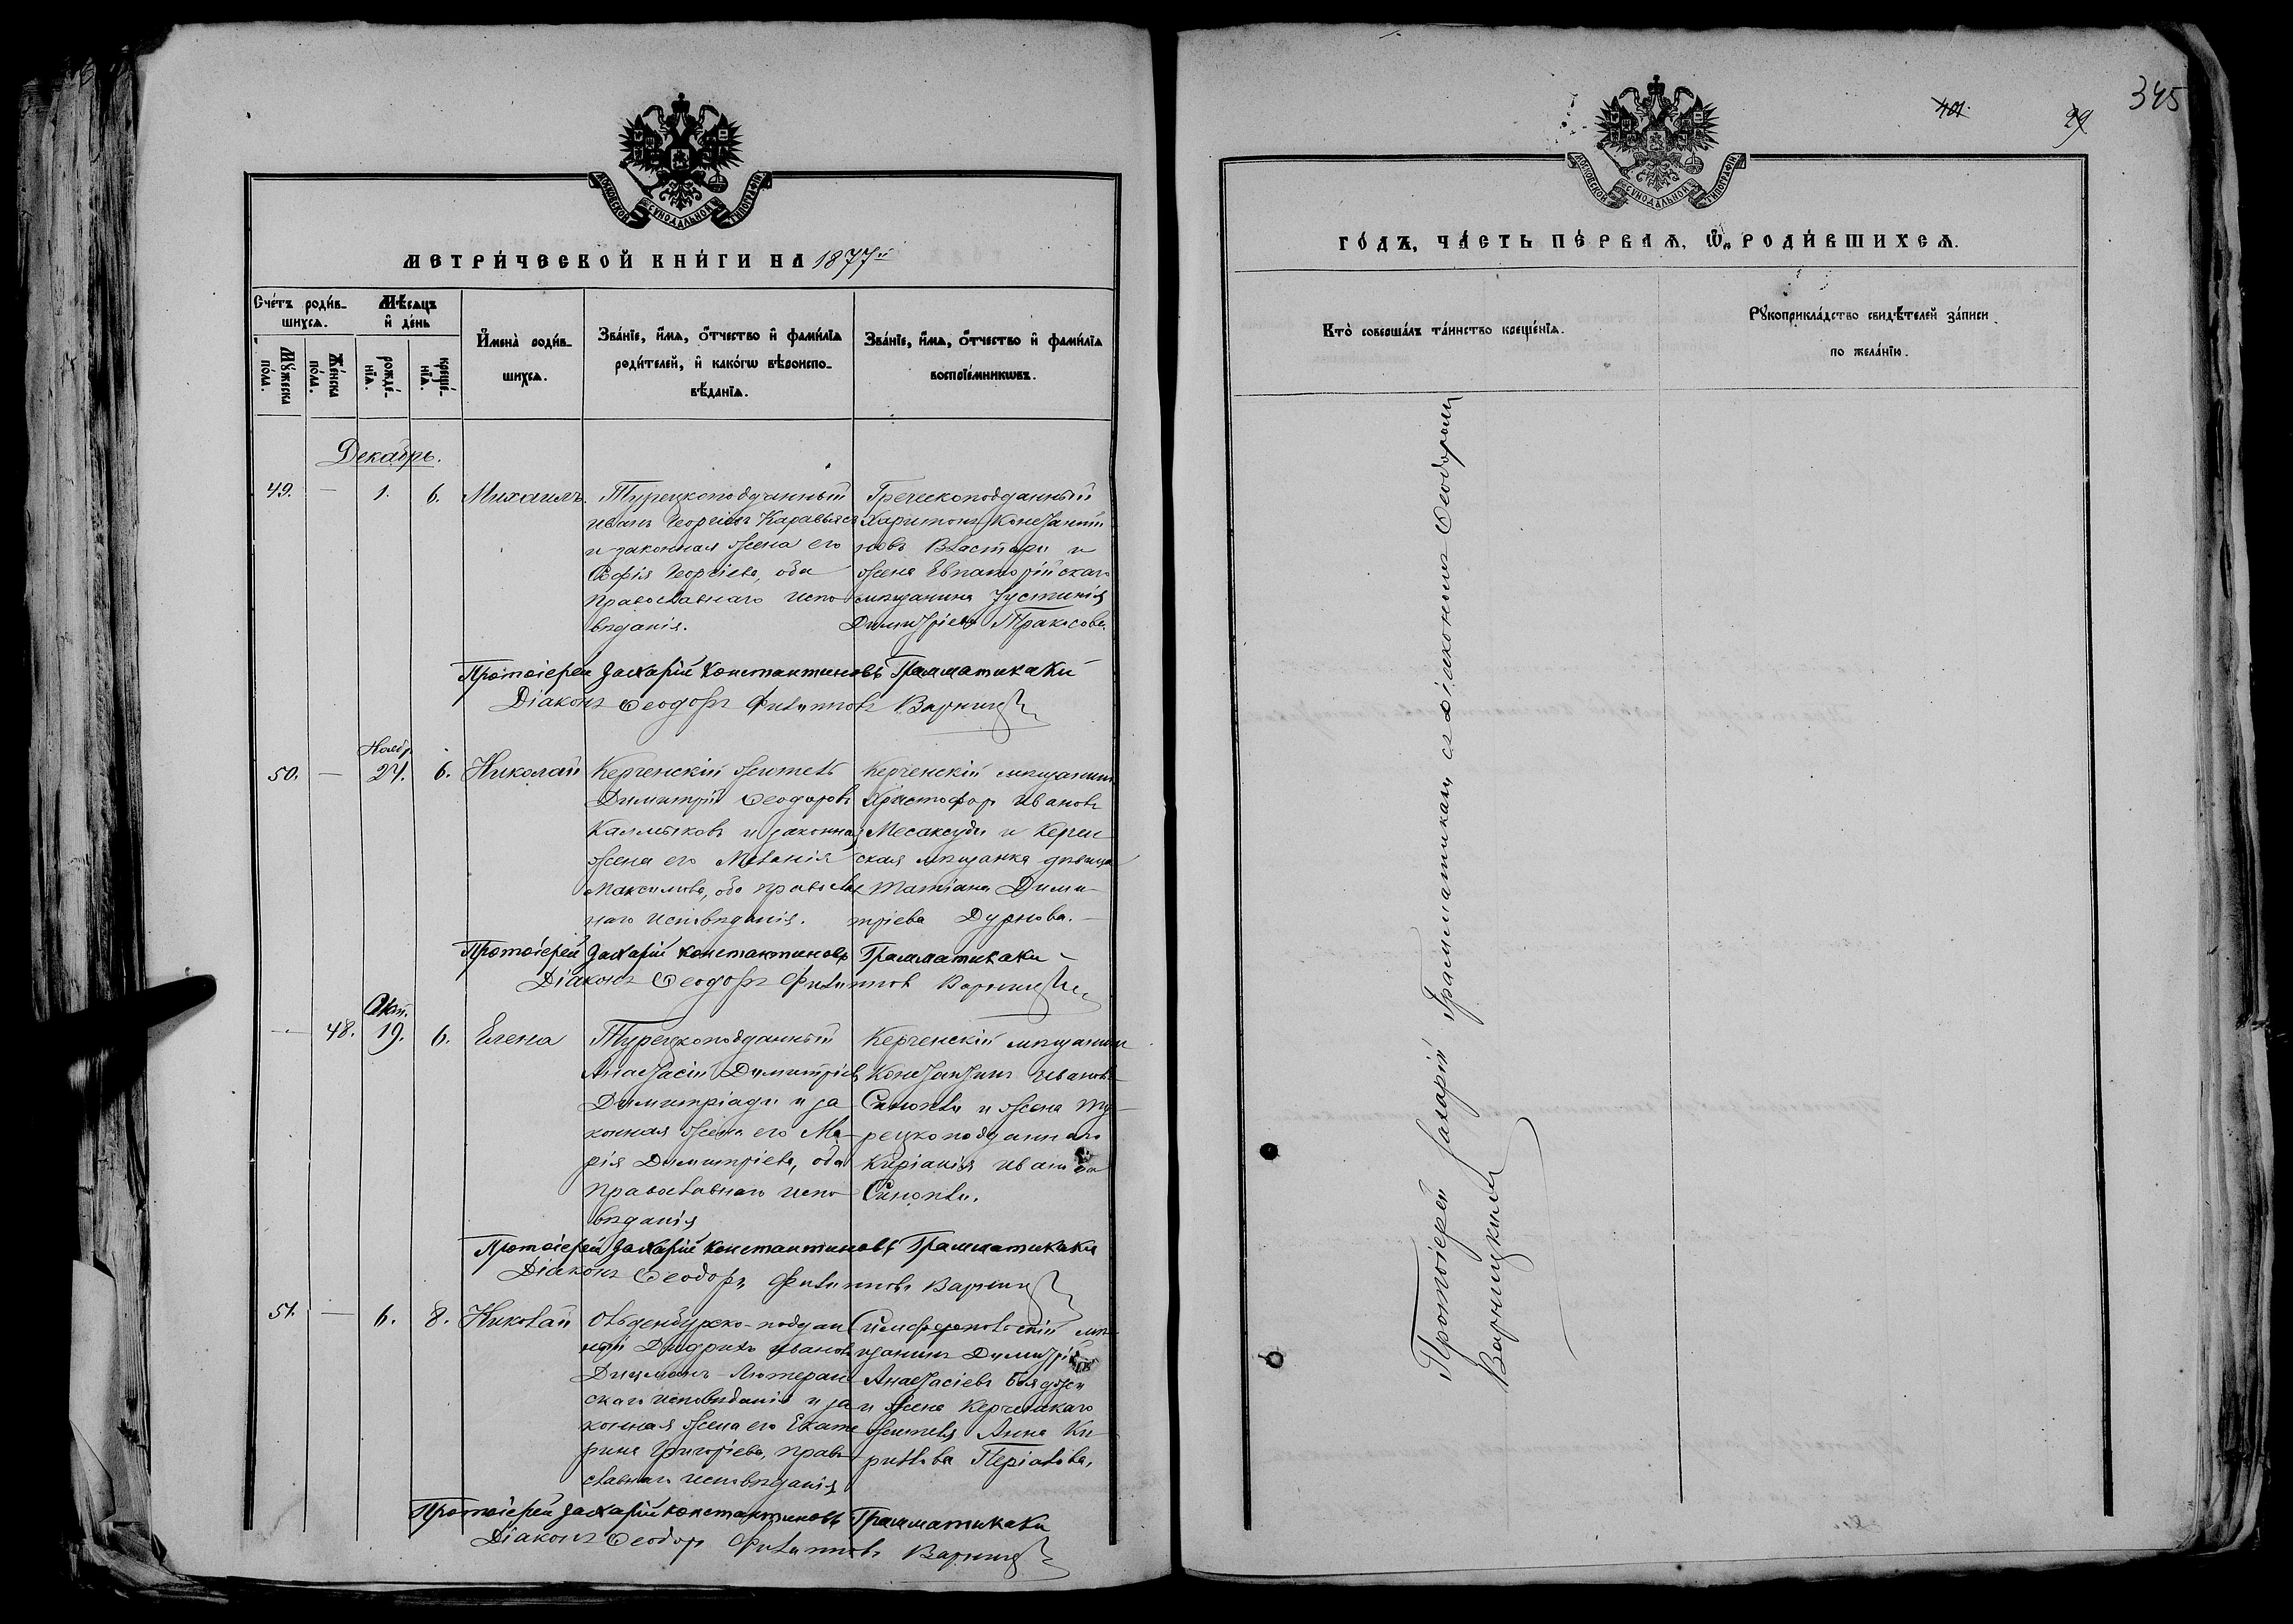 МОСКОВСКОЙ СУНОДАЛЬНОЙ ТИПОГРАФІИ
МЕТРИ́ЧЕСКОЙ КНИ́ГИ НА 1877й
Сче́тъ роди́в-
шихсѧ.
Мѣ́сѧцъ
и҆ де́нь
Мꙋ́жеска по́ла.
Же́нска по́ла.
рожде́-
нїѧ.
креще́-
нїѧ.
И҆мена̀ роди́в-
шихсѧ.
Зва́нїе, и҆́мѧ, ѻ҆́тчество и҆ фами́лїѧ
роди́телей, и҆ како́гѡ вѣроиспо-
вѣ́данїѧ.
Зва́нїе, и҆́мѧ, ѻ҆́тчество и҆ фами́лїѧ
воспрїе́мникѡвъ.
Декабрь.
49. — 1. 6. Михаилъ.
Турецкоподданный
Иванъ Георгіевъ
и законная жена его
Софія Георгіева, оба
православнаго испо-
вѣданія.
Греческоподданный
Харитонъ Константи-
новъ Властари и
жена Евпаторійскаго
мѣщанина Іустинія
Димитріева
Протоіерей Захарій Константиновъ Грамматикаки
Діаконъ Ѳеодоръ Филипповъ Варницкій
50. — Ноябр. 24. 6. Николай
Керченскій житель
Димитрій Ѳеодоровъ
Калмыковъ и законная
жена его Меланія
Максимова, оба православ-
наго исповѣданія.
Керченскій мѣщанинъ
Христофоръ Ивановъ
Месаксуди и Керчен-
ская мѣщанка дѣвица
Татіана Дими-
тріева Дурнова. —
Протоіерей Захарій Константиновъ Грамматикаки
Діаконъ Ѳеодоръ Филипповъ Варницкій
— 48. Окт. 19. 6. Елена
Турецкоподданный
Анастасій Димитріевъ
Димитріади и за-
конная жена его Ма-
рія Димитріева, оба
православнаго испо-
вѣданія
Керченскій мѣщанинъ
Константинъ Ивановъ
Синопли и жена ту-
рецкоподданнаго
Киріакія Иванова
Синопли.
Протоіерей Захарій Константиновъ Грамматикаки
Діаконъ Ѳеодоръ Филипповъ Варницкій
51. — 6. 8. Николай
Ольденбурско-поддан-
ный Дидрихъ Ивановъ
Лютеран-
скаго исповѣданія и за-
конная жена его Екате-
рина Григорьева, право-
славнаго исповѣданія
Симферопольскій мѣ-
щанинъ Димитрій
Анастасіевъ
и жена Керченскаго
жителя Анна Ки-
риллова
Протоіерей Захарій Константиновъ Грамматикаки
Діаконъ Ѳеодоръ Филипповъ Варницкій
401.
29
345
МОСКОВСКОЙ СУНОДАЛЬНОЙ ТИПОГРАФІИ
ГО́ДЪ, ЧА́СТЬ ПЕ́РВАѦ, Ѡ҆ РОДИ́ВШИХСѦ.
Кто̀ соверша́лъ та́инство креще́нїѧ.
Рꙋкоприкла́дство свидѣ́телей за́писи
по жела́нїю.
Протоіерей Захарій Грамматикаки съ Діакономъ Ѳеодоромъ
Варницкимъ